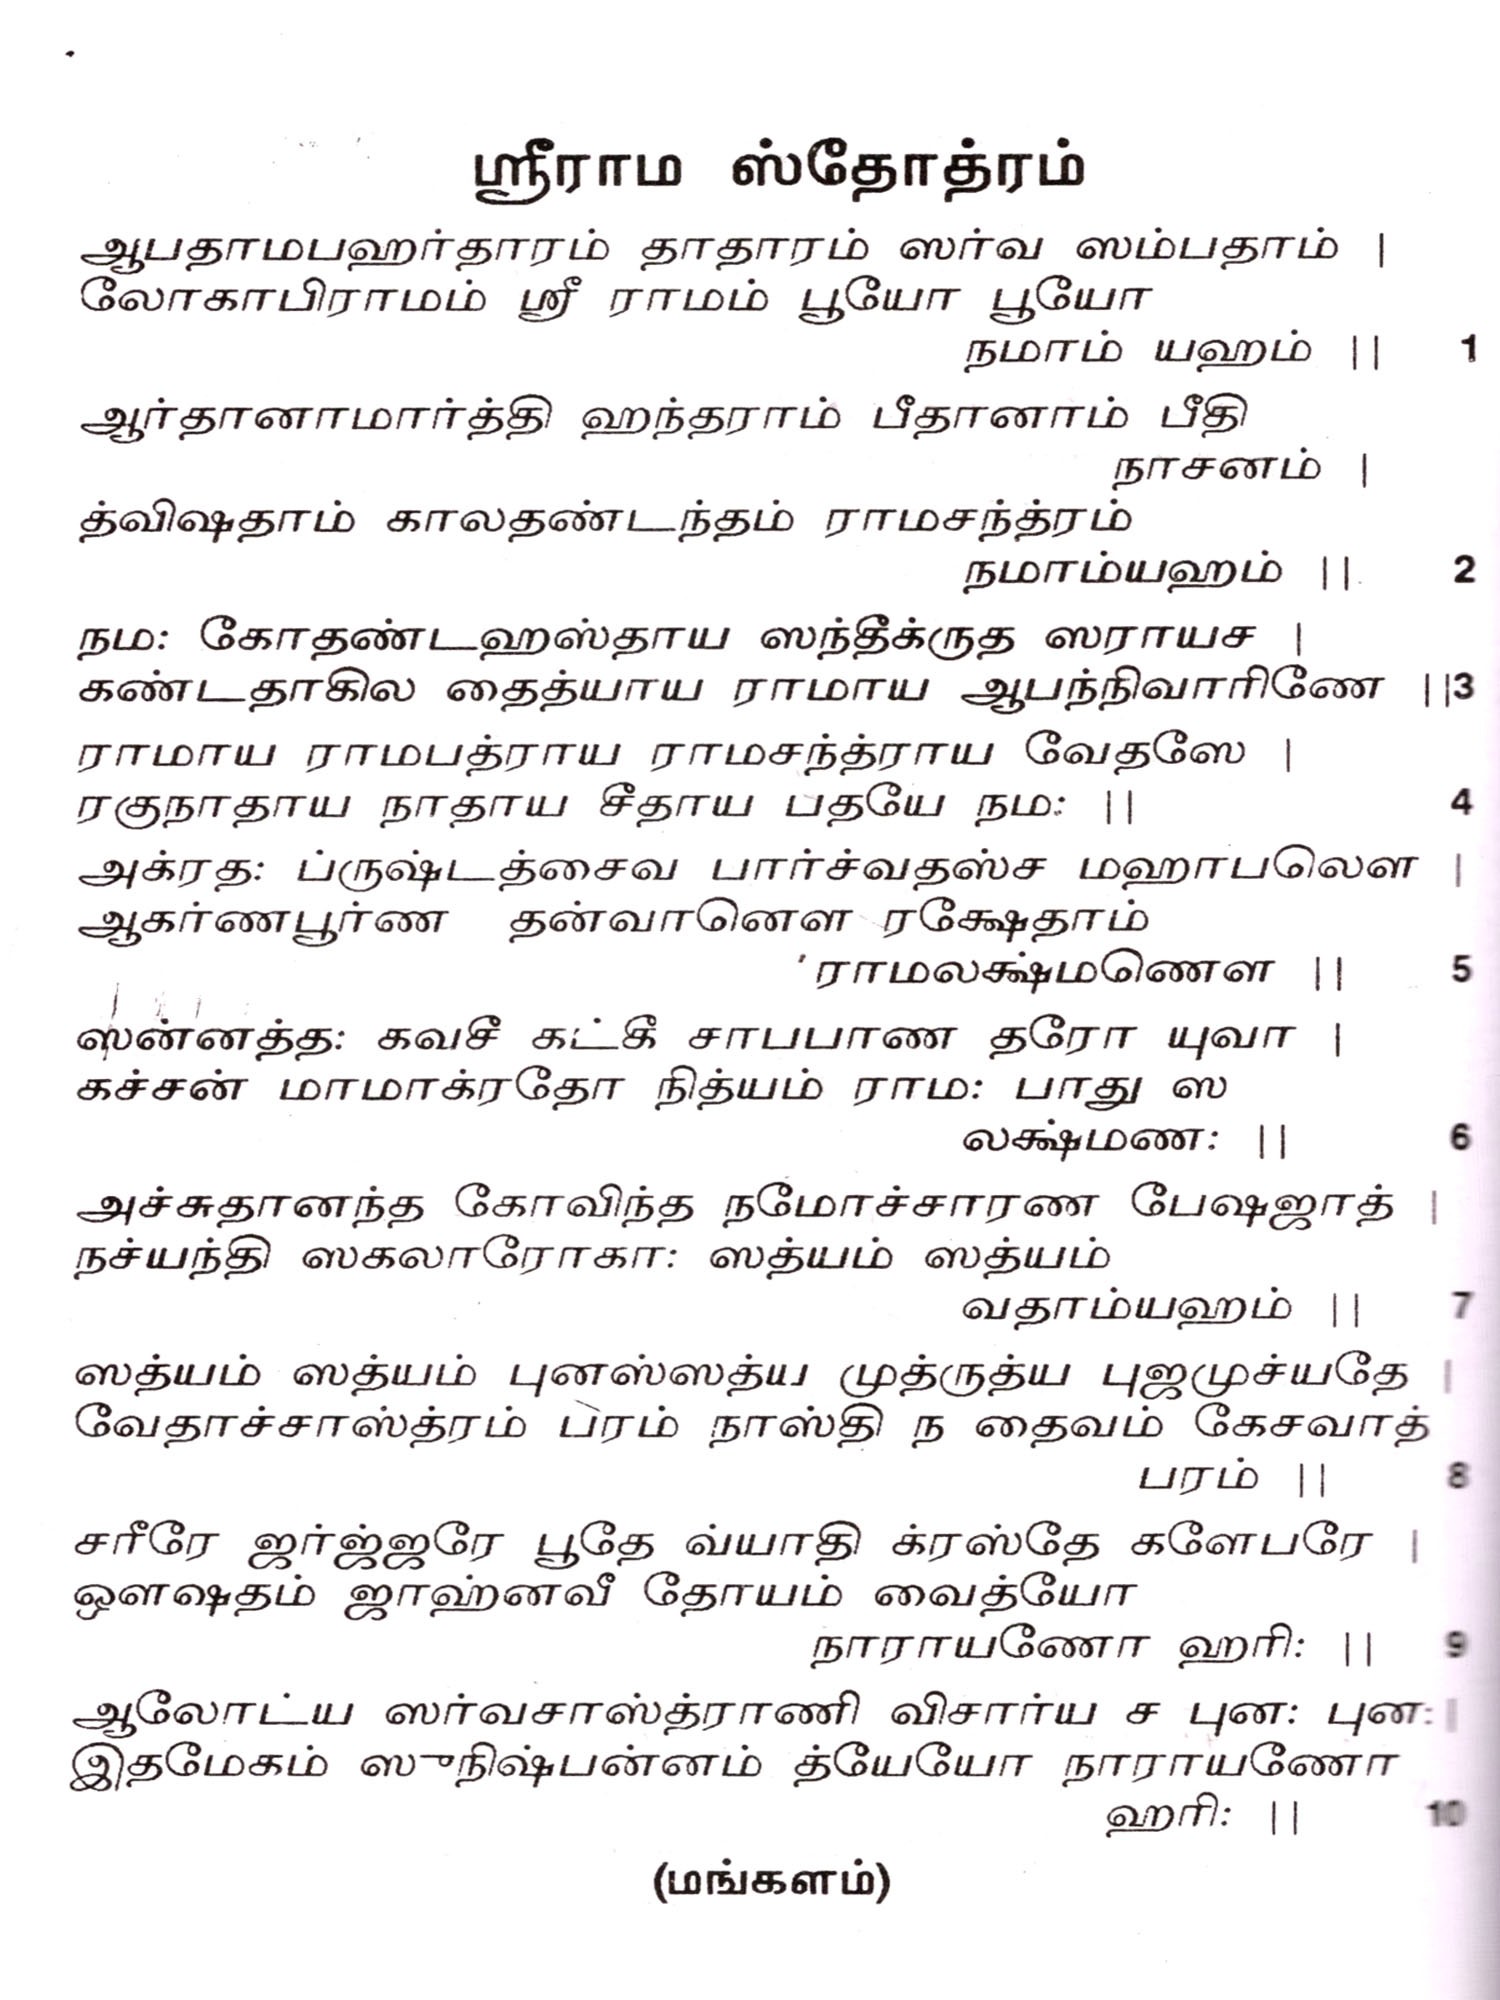 ஸ்ரீராம ஸ்தோத்ரம்
ஆபதாமபஹர்தாரம் தாதாரம் ஸர்வ ஸம்பதாம் |
லோகாபிராமம் ஸ்ரீ ராமம் பூயோ பூயோ
நமாம் யஹம் || 1
ஆர்தானாமார்த்தி ஹந்தராம் பீதானாம் பீதி
நாசனம் |
த்விஷதாம் காலதண்டந்தம் ராமசந்த்ரம்
நமாம்யஹம் || 2
நம: கோதண்டஹஸ்தாய ஸந்தீக்ருத ஸராயச |
கண்டதாகில தைத்யாய ராமாய ஆபந்நிவாரிணே ||3
ராமாய ராமபத்ராய ராமசந்த்ராய வேதஸே |
ரகுநாதாய நாதாய சீதாய பதயே நம: || 4
அக்ரத: ப்ருஷ்டத்சைவ பார்ச்வதஸ்ச மஹாபலௌ |
ஆகர்ணபூர்ண தன்வானௌ ரக்ஷேதாம்
ராமலக்ஷ்மணௌ || 5
ஸன்னத்த: கவசீ கட்கீ சாபபாண தரோ யுவா |
கச்சன் மாமாக்ரதோ நித்யம் ராம: பாது ஸ
லக்ஷ்மண: || 6
அச்சுதானந்த கோவிந்த நமோச்சாரண பேஷஜாத் |
நச்யந்தி ஸகலாரோகா: ஸத்யம் ஸத்யம்
வதாம்யஹம் || 7
ஸத்யம் ஸத்யம் புனஸ்ஸத்ய முத்ருத்ய புஜமுச்யதே |
வேதாச்சாஸ்த்ரம் பரம் நாஸ்தி ந தைவம் கேசவாத்
பரம் || 8
சரீரே ஜர்ஜ்ஜரே பூதே வ்யாதி க்ரஸ்தே களேபரே |
ஔஷதம் ஜாஹ்னவீ தோயம் வைத்யோ
நாராயணோ ஹரி: || 9
ஆலோட்ய ஸர்வசாஸ்த்ராணி விசார்ய ச புன: புன: |
இதமேகம் ஸுநிஷ்பன்னம் த்யேயோ நாராயணோ
ஹரி: || 10
(மங்களம்)